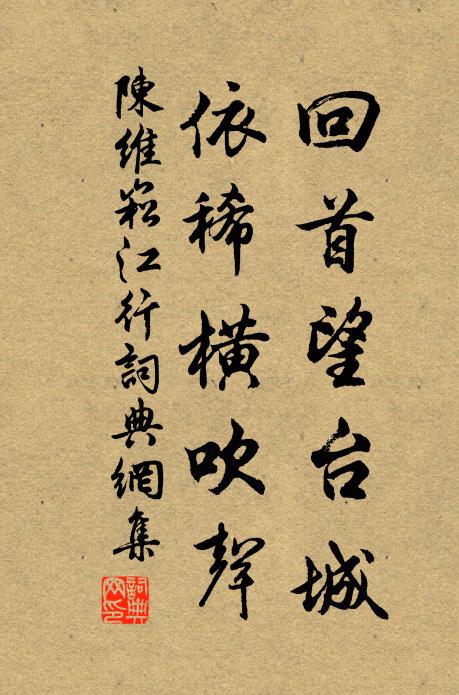 回首望台城
依稀橫吹聲
陳維崧江行詞典網集
詞典网印